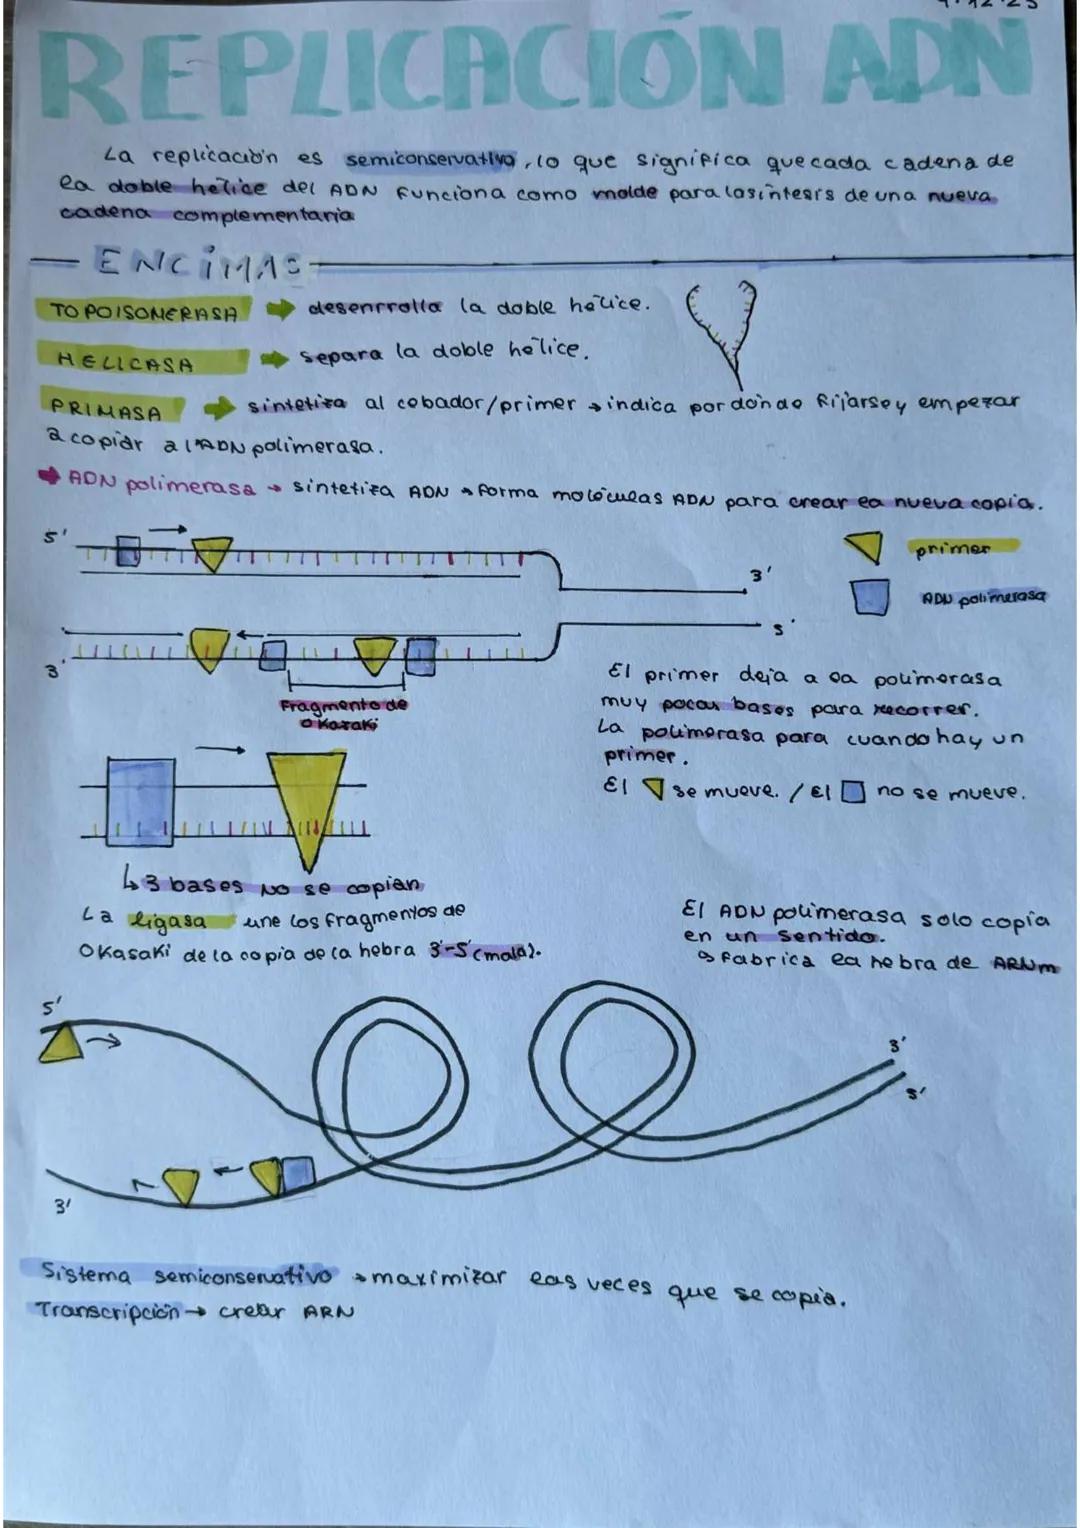 REPLICACIÓN ADN
La replicación es semiconservativa, lo que significa que cada cadena de
la doble hélice del ADN funciona como molde para la síntesis de una nueva
cadena complementaria
ENCIMAS
TOPOISOMERASA → desenrrolla la doble hélice.
HELICASA → separa la doble hélice.
PRIMASA → sintetiza al cebador/primer → indica por dónde fijarse y empezar
a copiar a l'ADN polimerasa.
→ ADN polimerasa → sintetiza ADN → forma moléculas ADN para crear la nueva copia.
5'
primer
3'
ADN polimerasa
5'
3'
Fragmento de
Okazaki
El primer deja a la polimerasa
muy pocas bases para recorrer.
La polimerasa para cuando hay un
primer.
El se mueve. / El no se mueve.
↳ 3 bases NO se copian
La ligasa une los fragmentos de
Okasaki de la copia de la hebra 3'-5' (mala).
El ADN polimerasa solo copia
en un sentido.
↳ fabrica la hebra de ARNm
5'
3'
5'
3'
Sistema semiconservativo → maximizar las veces que se copia.
Transcripción → crear ARN